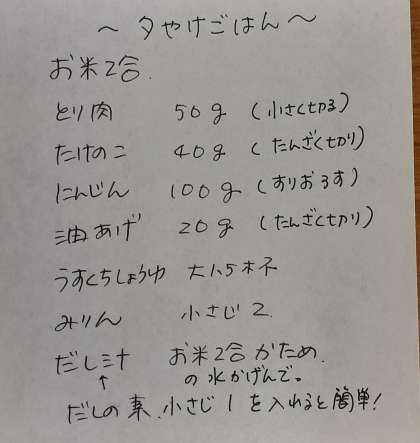 ～夕やけごはん～
お米2合.
とり肉 50g (小さく切る)
たけのこ 40g (たんざく切り)
にんじん 100g (すりおろす)
油あげ 20g (たんざく切り)
うすくちしょうゆ 大1.5杯
みりん 小さじ2
だし汁 お米2合かため.
↑ の水かげんで。
だしの素.小さじ1を入れると簡単!